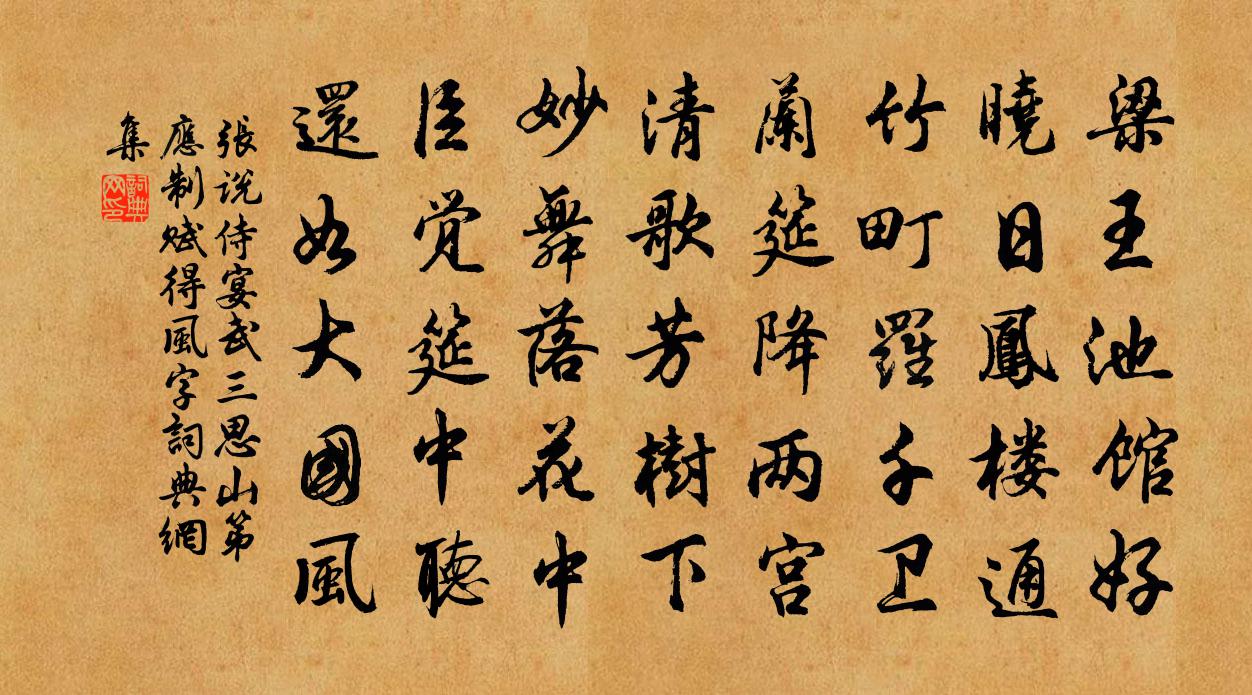 梁王池館好
曉日鳳楼通
竹町羅千卫
蘭筵降两宫
清歌芳樹下
妙舞落花中
臣觉筵中聽
還如大國風
張説侍宴武三思山第
應制赋得風字詞典網
集
詞典网印